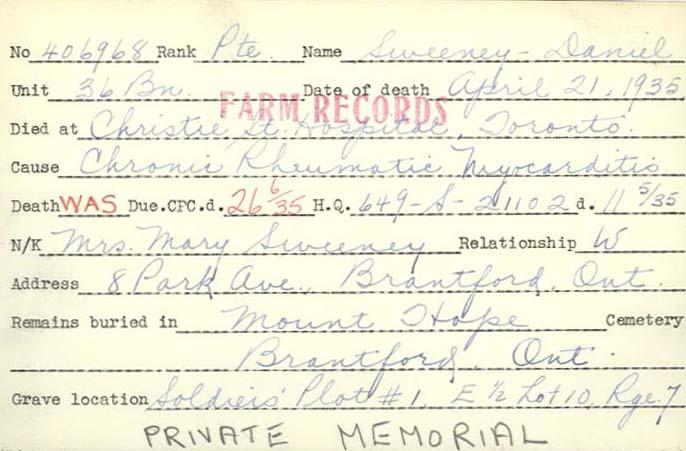 No 406968 Rank Pte. Name Sweeney - Daniel
Unit 36 Bn. Date of death April 21, 1935
FARM RECORDS
Died at Christie St. Hospital, Toronto.
Cause Chronic Rheumatic Myocarditis
Death WAS Due. CPC.d. 26 6/35 H.Q. 649-S-21102 d. 11 5/35
N/K Mrs. Mary Sweeney Relationship W
Address 8 Park Ave., Brantford, Ont.
Remains buried in Mount Hope Cemetery
Brantford, Ont.
Grave location Soldiers' Plot #1. E 1/2 Lot 10, Rge. 7
PRIVATE MEMORIAL